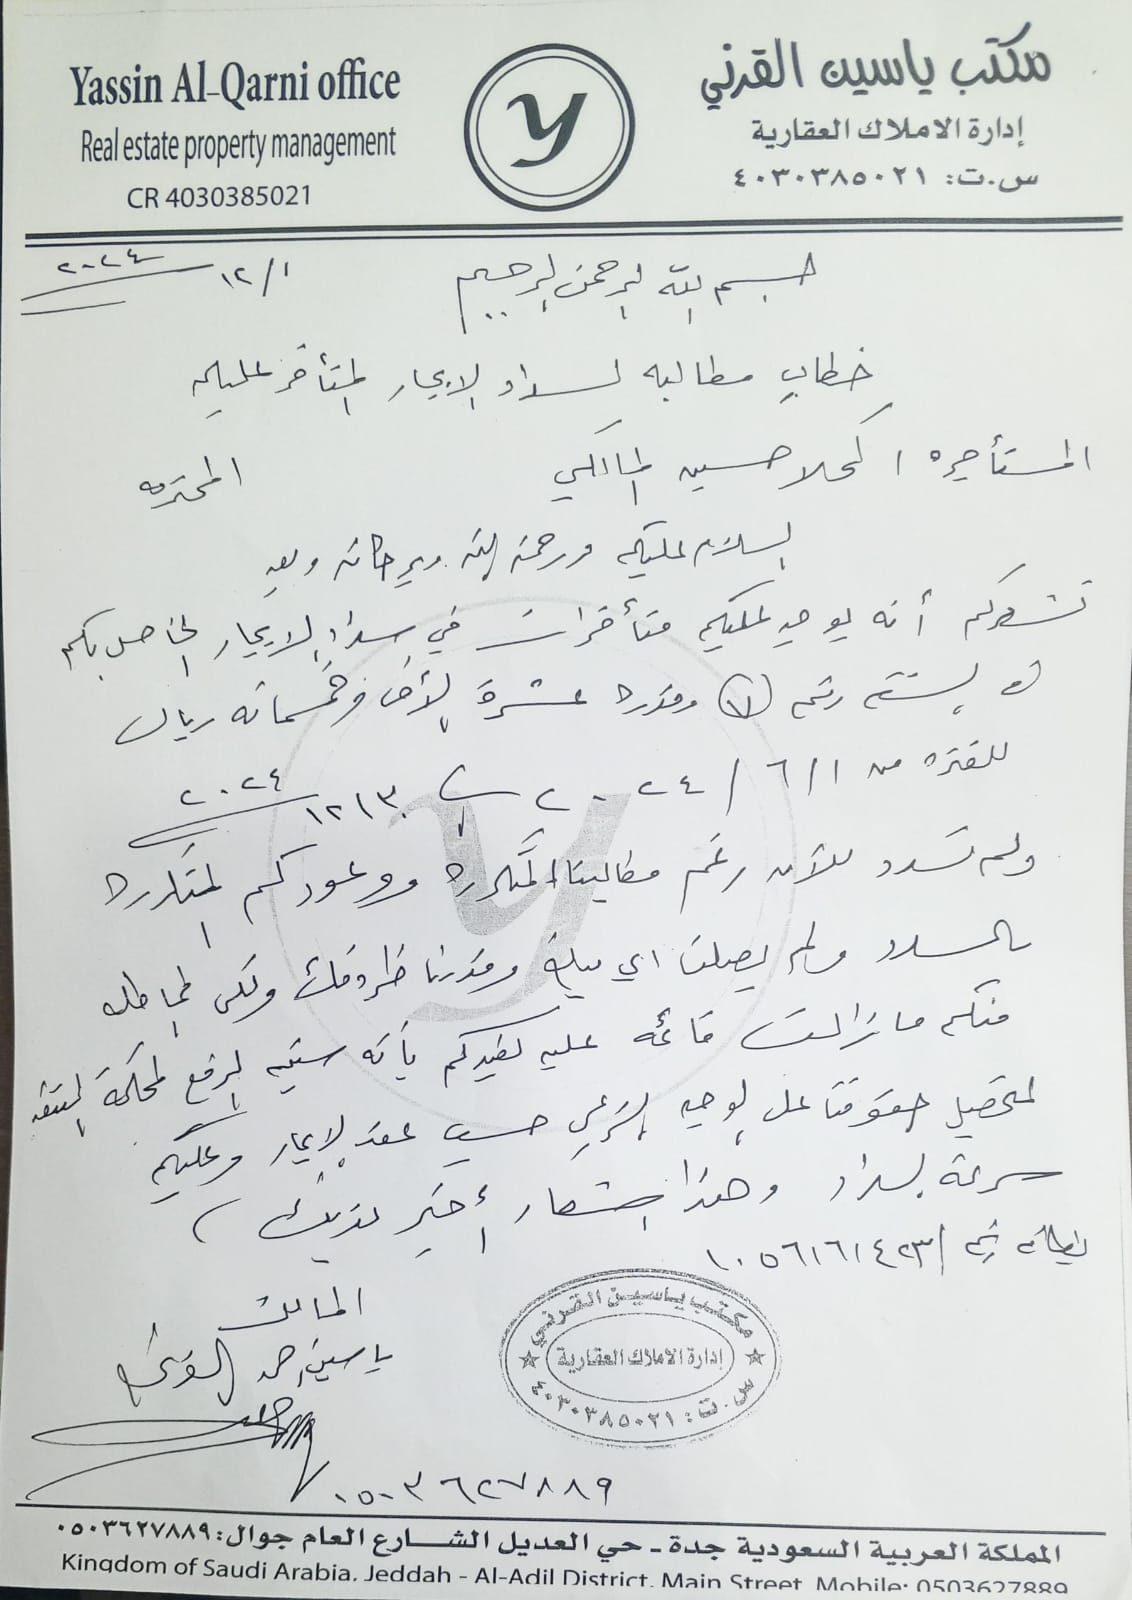 Yassin Al-Qarni office
Real estate property management
CR 4030385021
مكتب ياسين القرني
إدارة الاملاك العقارية
س.ت: ٤٠٣٠٣٨٥٠٢١
١/١٢ ٢٠٢٤
بسم الله الرحمن الرحيم
خطاب مطالبه لسداد الايجار المتأخر عليكم
المستأجره / كحلا حسين المالكي المحترمه
السلام عليكم ورحمة الله وبركاته وبعد
نشعركم أنه يوجد عليكم متأخرات في سداد الايجار الخاص بكم
رقم (٧) وقدره عشرة الأف وخمسمائه ريال
للفتره من ١/٦/٢٠٢٤ ٣٠/١٢ ٢٠٢٤
ولم تسدد للآن رغم مطالبنا المتكرره ووعودكم المتكرره
بالسداد ولم يصلنا اي مبلغ وقدرنا ظروفك ولكن المماطله
منكم مازالت قائمه عليه نفيدكم بأنه سيتم الرفع لمحكمة التنفيذ
لتحصيل حقوقنا على الوجه الشرعي حسب عقد الايجار وعليكم
سرعة السداد وهذا اشعار أخير لديك
بطاقه رقم / ١٠٥٦١٦١٤٢٣
المالك
ياسين احمد القرني
مكتب ياسين القرني
إدارة الاملاك العقارية
س.ت: ٤٠٣٠٣٨٥٠٢١
٠٥٠٣٦٢٧٨٨٩
المملكة العربية السعودية جدة - حي العديل الشارع العام جوال: ٠٥٠٣٦٢٧٨٨٩
Kingdom of Saudi Arabia, Jeddah - Al-Adil District, Main Street Mobile: 0503627889